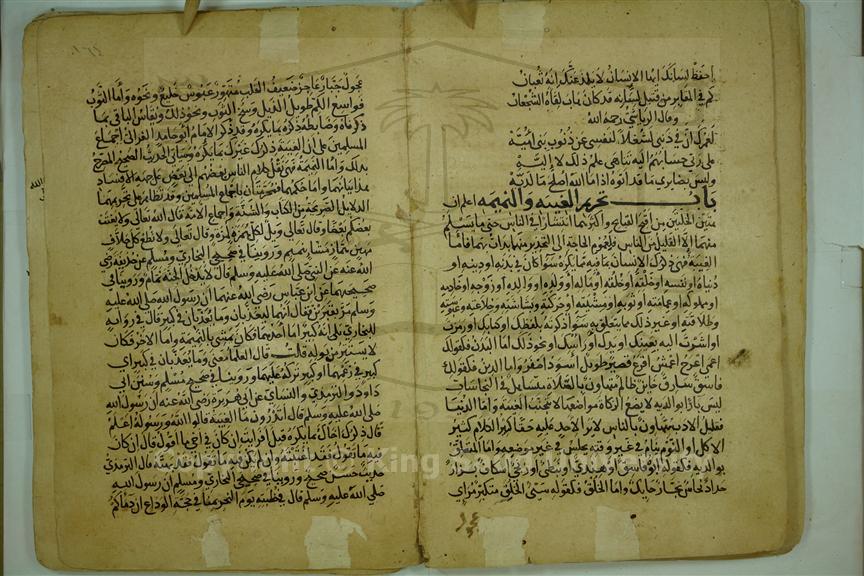 احفظ لسانك ايها الانسان لا يلدغنك انه ثعبان
كم في المقابر من قتيل لسانه قد كان هاب لقاءه الشجعان
وقال الرياشي رحمه الله
لعمرك ان في ذنبي لشغلا لنفسي عن ذنوب بني اميه
على ربي حسابهم اليه تناهى علم ذلك لا اليه
وليس بضايري ما قد اتوه اذا ما الله اصلح ما لديه
باب تحريم الغيبه والنميمه اعلم ان
هاتين الخصلتين من اقبح القبايح واكثرها انتشارا في الناس حتى ما يسلم
منهما الا القليل من الناس فلعموم الحاجة الى التحذير منهما بدات بهما فاما
الغيبة فهي ذكرك الانسان بما فيه مما يكره سوا كان في بدنه او دينه او
دنياه او نفسه او خلقه او خلقه او ماله او ولده او والده او زوجه او خادمه
او مملوكه او عمامته او ثوبه او مشيته او حركته وبشاشته وخلاعته وعبوسه
وطلاقته او غير ذلك مما يتعلق به سوا ذكرته بلفظك او كتابك او رمزت
او اشرت اليه بعينك او يدك او راسك او نحو ذلك اما البدن فكقولك
اعمى اعرج اعمش اقرع قصير طويل اسود اصفر واما الدين فكقولك
فاسق سارق خاين ظالم متهاون بالصلاة متساهل في النجاسات
ليس بارا بوالديه لا يضع الزكاة مواضعها لا يجتنب الغيبة واما الدنيا
فقليل الادب يتهاون بالناس لا يرى لاحد عليه حقا كثير الكلام كثير
الاكل او النوم ينام في غير وقته يجلس في غير موضعه واما المتعلق
بوالديه فكقوله ابوه فاسق او هندي او نبطي او زنجي اسكاف بزاز
حداد نحاس نجار حايك واما الخلق فكقوله سيئ الخلق متكبر مراي
عجول جبار عاجز ضعيف القلب متهور عبوس خليع ونحوه واما الثوب
فواسع الكم طويل الذيل وسخ الثوب ونحو ذلك ويقاس الباقي بما
ذكرناه وضابطه ذكره بما يكره وقد ذكر الامام ابو حامد الغزالي اجماع
المسلمين على ان الغيبة ذكرك غيرك بما يكره وسياتي الحديث الصحيح المصرح
بذلك واما النميمة فهي نقل كلام الناس بعضهم الى بعض على جهة الافساد
هذا بيانهما واما حكمهما فمحرمتان باجماع المسلمين وقد تظاهر على تحريمهما
الدلايل الصريحة من الكتاب والسنة واجماع الامة قال الله تعالى ولا يغتب
بعضكم بعضا وقال تعالى ويل لكل همزة لمزة وقال تعالى ولا تطع كل حلاف
مهين هماز مشاء بنميم وروينا في صحيحي البخاري ومسلم عن حذيفة رضي
الله عنه عن النبي صلى الله عليه وسلم قال لا يدخل الجنة نمام وروينا في
صحيحيهما عن ابن عباس رضي الله عنهما ان رسول الله صلى الله عليه
وسلم مر بقبرين فقال انهما ليعذبان وما يعذبان في كبير قال في رواية
للبخاري بلى انه كبير اما احدهما فكان يمشي بالنميمة واما الاخر فكان
لا يستتر من بوله قلت قال العلما معنى وما يعذبان في كبير اي
كبير في زعمهما او كبير تركه عليهما وروينا في صحيح مسلم وسنن ابي
داود والترمذي والنساي عن ابي هريرة رضي الله عنه ان رسول الله
صلى الله عليه وسلم قال اتدرون ما الغيبة قالوا الله ورسوله اعلم
قال ذكرك اخاك بما يكره قيل افرايت ان كان في اخي ما اقول قال ان كان
فيه ما تقول فقد اغتبته وان لم يكن فيه ما تقول فقد بهته قال الترمذي
حديث حسن صحيح وروينا في صحيحي البخاري ومسلم ان رسول الله
صلى الله عليه وسلم قال في خطبته يوم النحر بمنا في حجة الوداع ان دماءكم